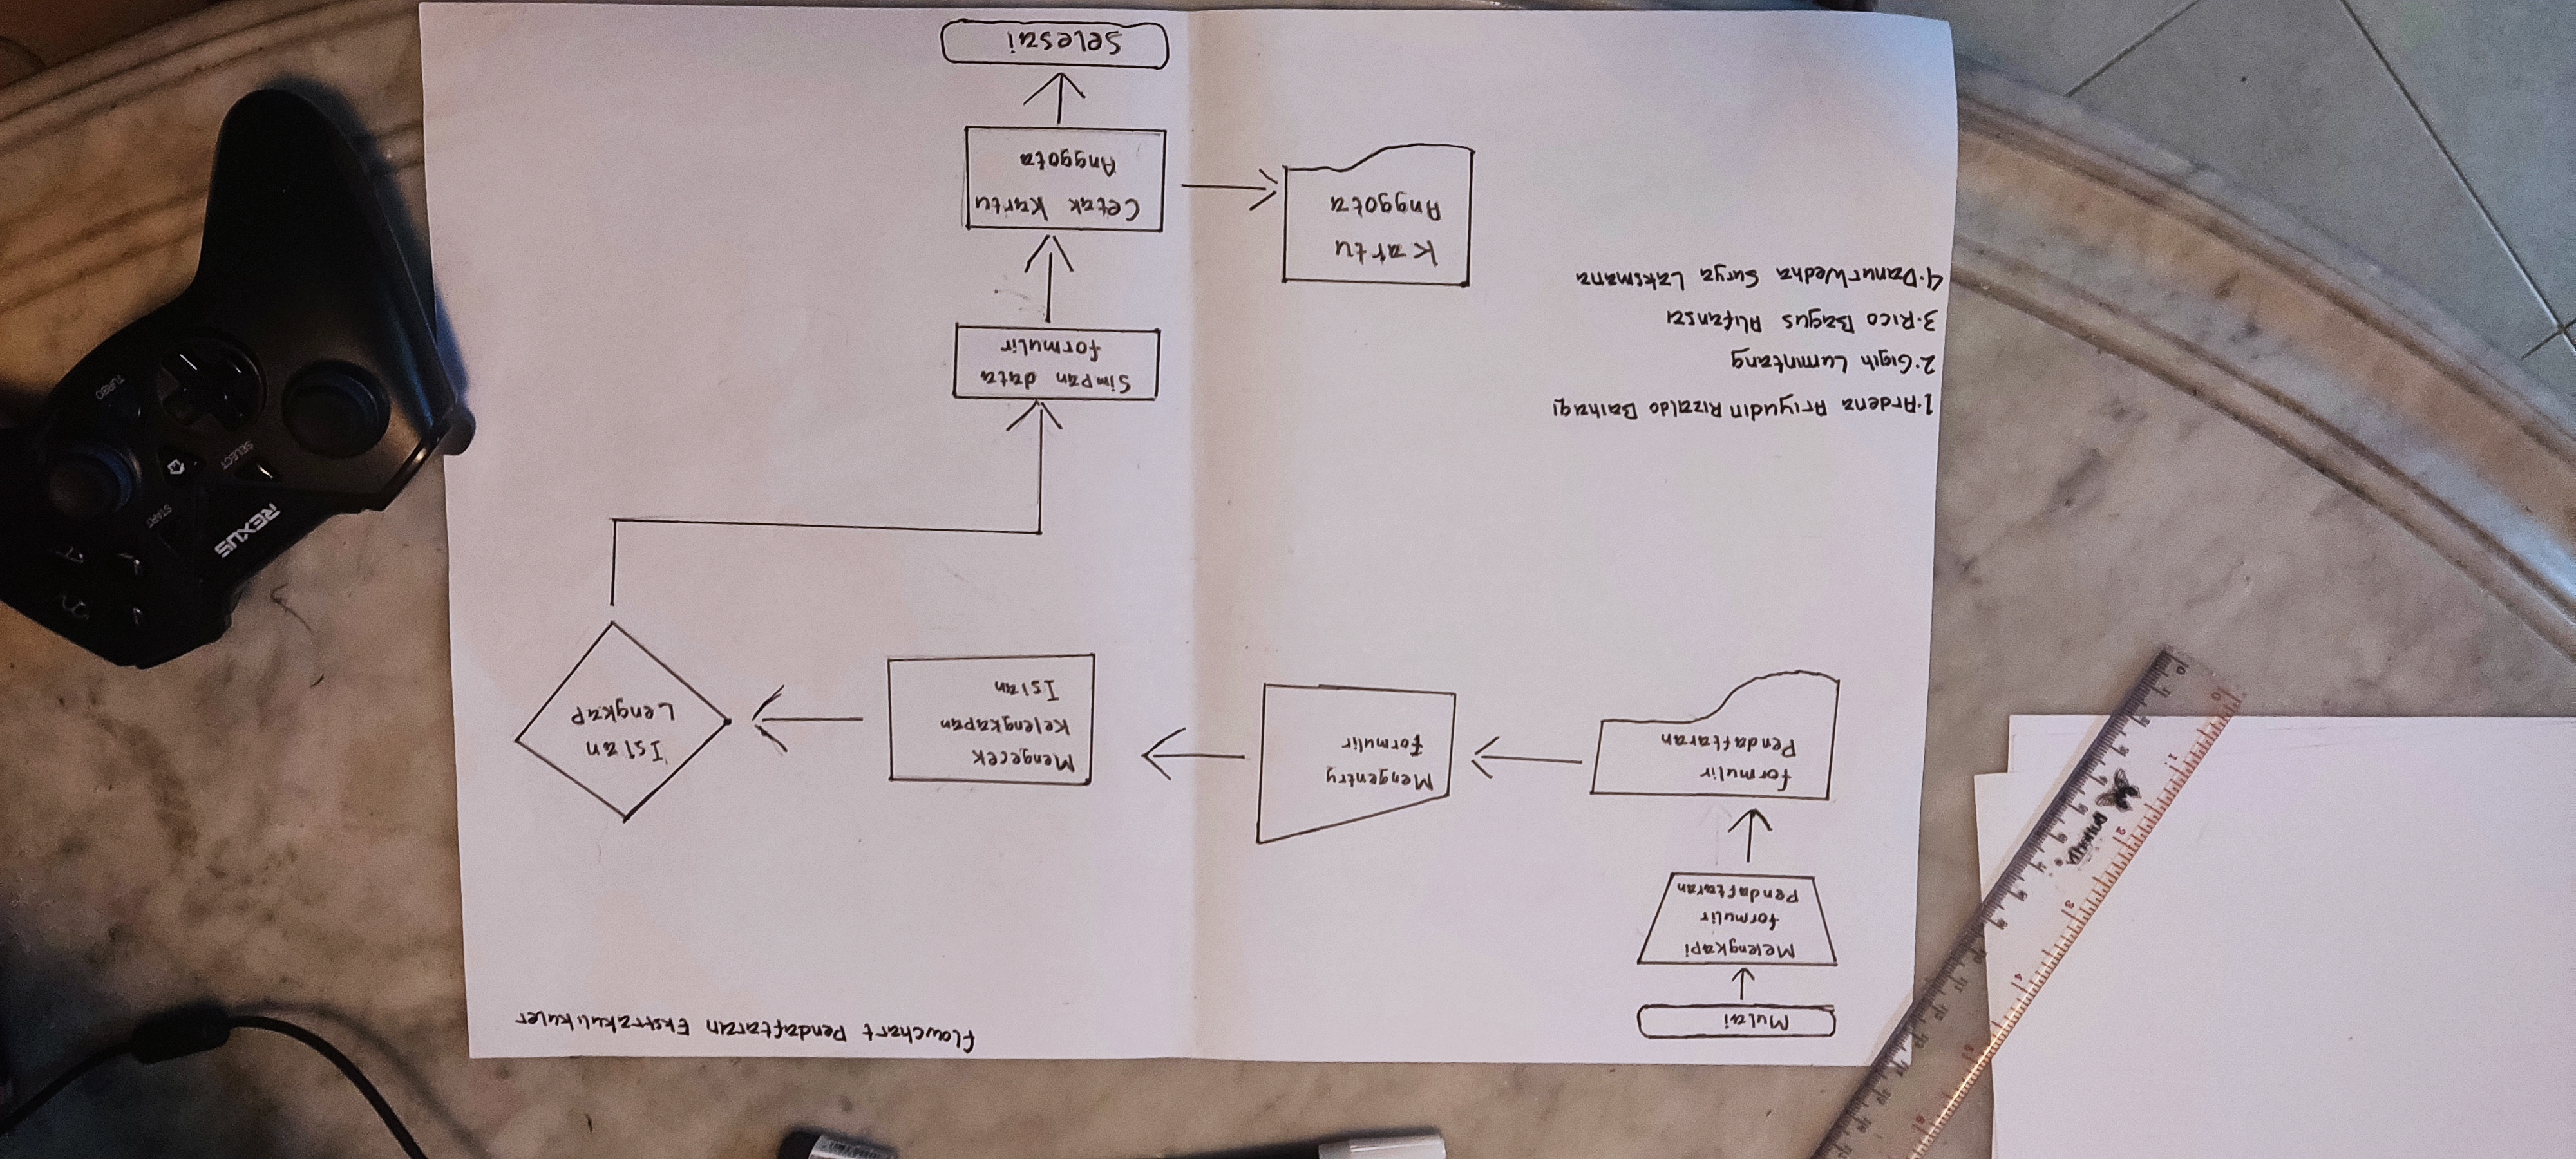 flowchart Pendaftaran Ekstrakulikuler
Mulai
Melengkapi
formulir
Pendaftaran
formulir
Pendaftaran
Mengentry
formulir
Mengecek
Kelengkapan
Isian
Isian
Lengkap
Simpan data
formulir
Cetak Kartu
Anggota
Kartu
Anggota
Selesai
1.Ardena Ariyudin Rizaldo Baihaqi
2.Gigih Lumintang
3.Rico Bagus Alifansa
4.DanurWedha Surya Laksmana
REXUS
START
SELECT
TURBO